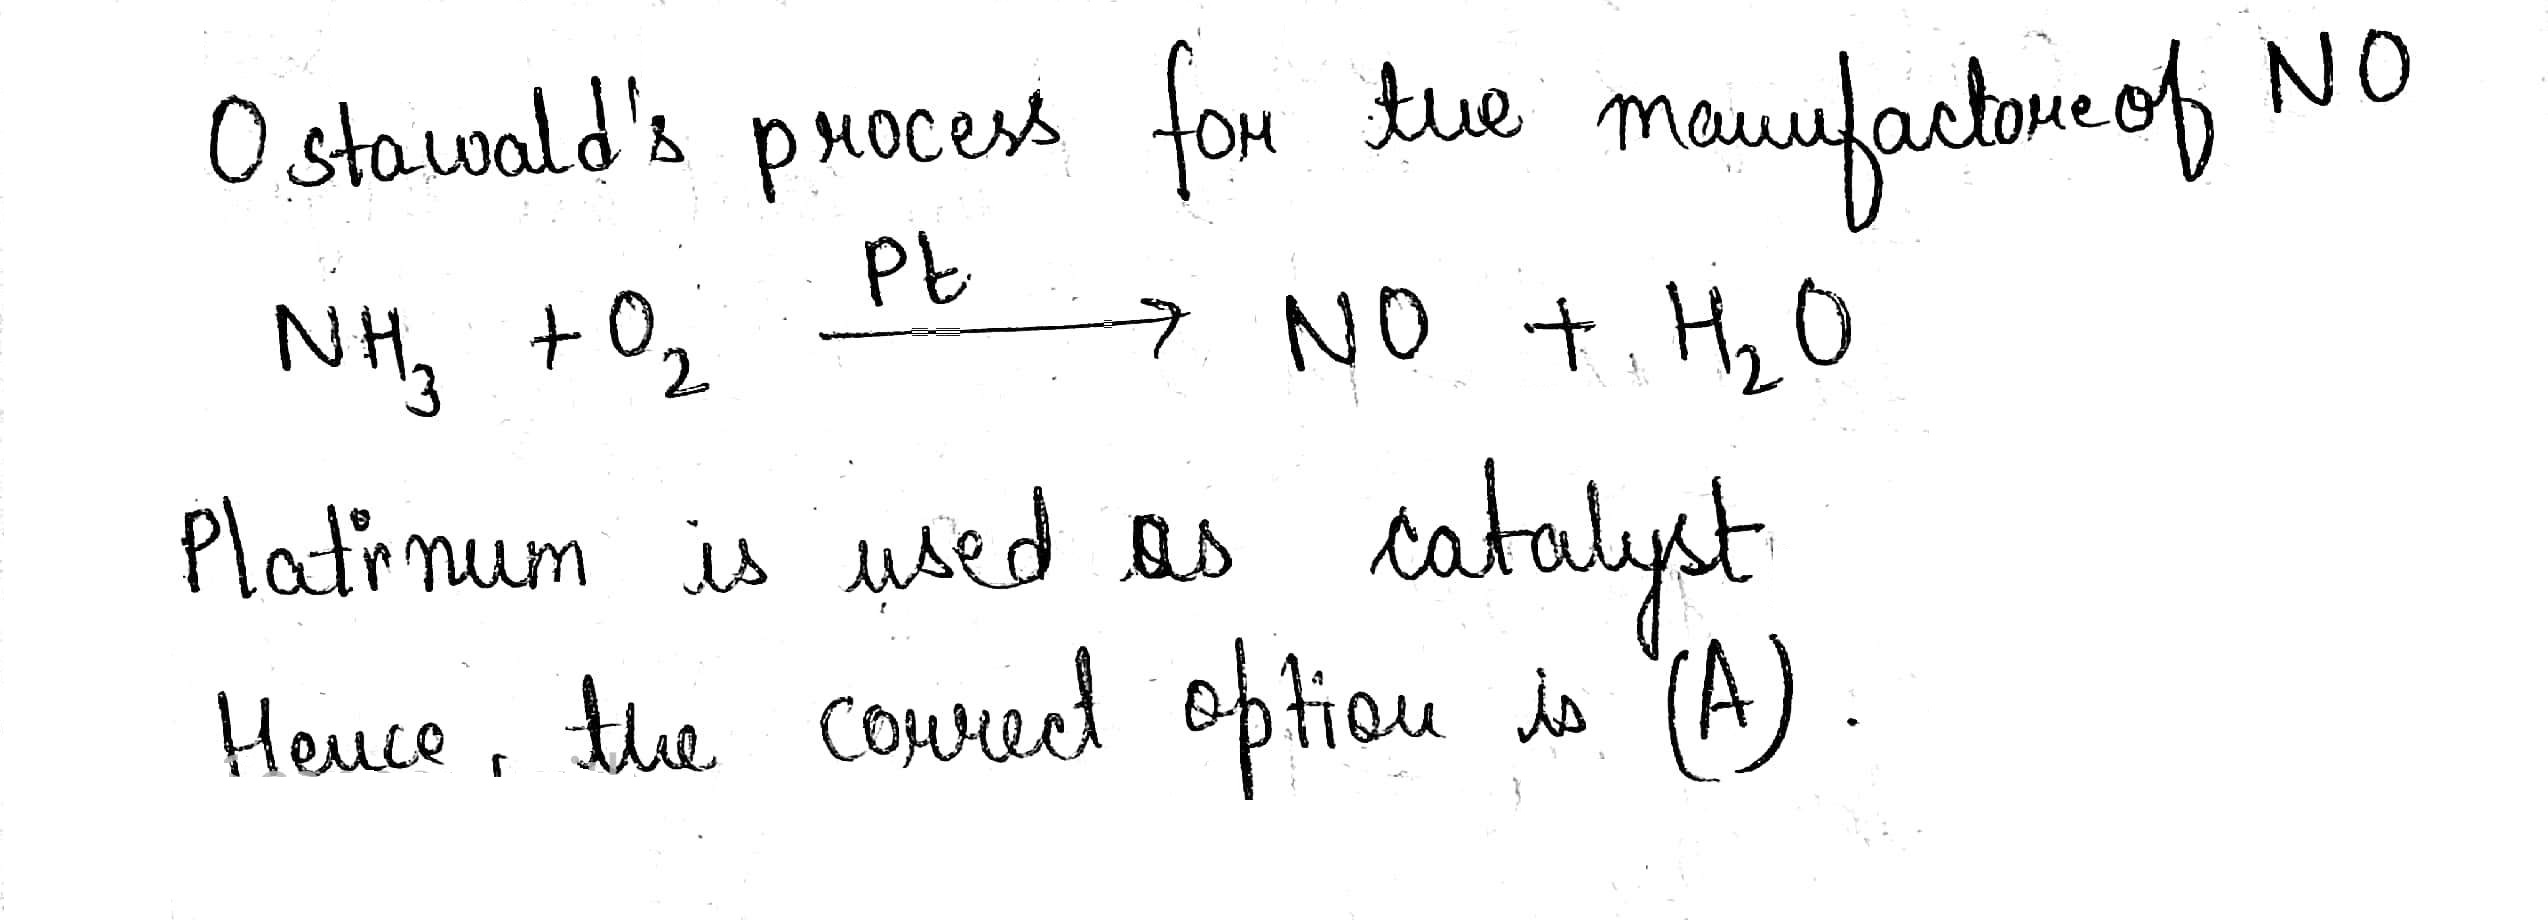 Ostawald's process for the manufactore of NO
NH₃ + O₂ —Pt→ NO + H₂O
Platinum is used as catalyst
Hence, the correct option is (A).